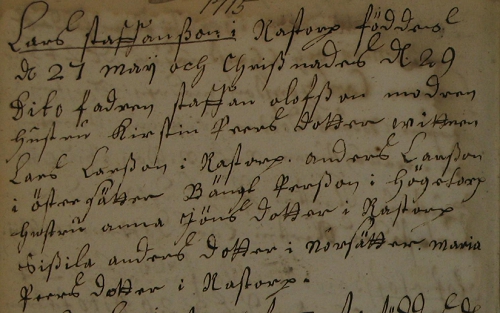 1715
Lars staffanßon i Rastorp föddes
d 27 may och Christnades d 29
Dito fadren staffan olofßon modren
hustru Kirstin Peers dotter witnen
Lars Larßon i Rastorp. anders Larßon
i östersätter Bängt Perßon i Högetorp
hustru anna Jöns dotter i Rastorp
Sißila anders dotter i Norsätter. maria
Peers dotter i Rastorp.